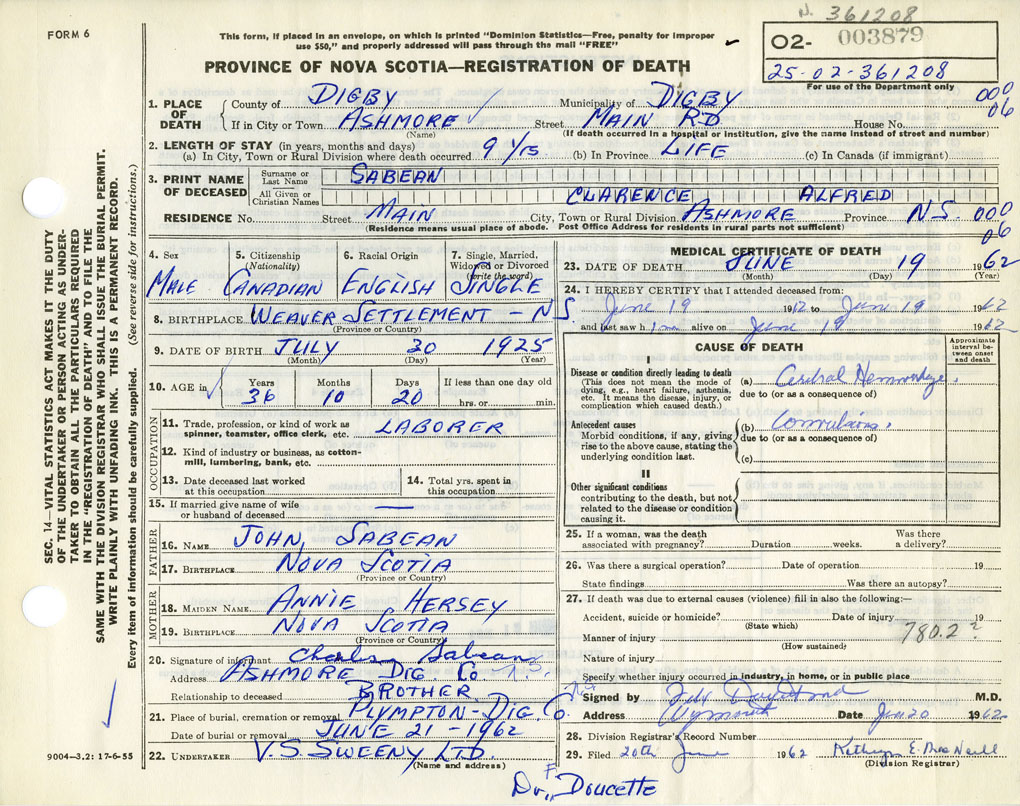 N. 361208
FORM 6
This form, if placed in an envelope, on which is printed "Dominion Statistics—Free, penalty for improper
use $50," and properly addressed will pass through the mail "FREE"
O2- 003879
25-02-361208
For use of the Department only
PROVINCE OF NOVA SCOTIA—REGISTRATION OF DEATH
000
06
1. PLACE OF DEATH
County of DIGBY Municipality of DIGBY
If in City or Town ASHMORE Street MAIN RD House No.
(Name) (If death occurred in a hospital or institution, give the name instead of street and number)
2. LENGTH OF STAY (in years, months and days)
(a) In City, Town or Rural Division where death occurred 9 1/15 (b) In Province LIFE (c) In Canada (if immigrant)
3. PRINT NAME OF DECEASED
Surname or Last Name SABEAN
All Given or Christian Names CLARENCE ALFRED
RESIDENCE No. Street MAIN City, Town or Rural Division ASHMORE Province N.S. 000
06
(Residence means usual place of abode. Post Office Address for residents in rural parts not sufficient)
4. Sex MALE
5. Citizenship (Nationality) CANADIAN
6. Racial Origin ENGLISH
7. Single, Married, Widowed or Divorced (write the word) SINGLE
8. BIRTHPLACE WEAVER SETTLEMENT - N.S.
(Province or Country)
9. DATE OF BIRTH JULY 30 1925
(Month) (Day) (Year)
10. AGE in
Years Months Days If less than one day old
36 10 20 hrs. or min.
OCCUPATION
11. Trade, profession, or kind of work as spinner, teamster, office clerk, etc. LABORER
12. Kind of industry or business, as cotton-mill, lumbering, bank, etc.
13. Date deceased last worked at this occupation
14. Total yrs. spent in this occupation
15. If married give name of wife or husband of deceased —
FATHER
16. NAME JOHN SABEAN
17. BIRTHPLACE NOVA SCOTIA
(Province or Country)
MOTHER
18. MAIDEN NAME ANNIE HERSEY
19. BIRTHPLACE NOVA SCOTIA
(Province or Country)
20. Signature of informant Charles Sabean
Address ASHMORE DIG CO N.S.
Relationship to deceased BROTHER
21. Place of burial, cremation or removal PLYMPTON - DIG. CO. N.S.
Date of burial or removal JUNE 21 - 1962
22. UNDERTAKER V.S. SWEENY LTD.
(Name and address)
MEDICAL CERTIFICATE OF DEATH
23. DATE OF DEATH JUNE 19 1962
(Month) (Day) (Year)
24. I HEREBY CERTIFY that I attended deceased from:
June 19 1962 to June 19 1962
and last saw him alive on June 19 1962
CAUSE OF DEATH
Approximate interval between onset and death
I
Disease or condition directly leading to death
(This does not mean the mode of dying, e.g., heart failure, asthenia, etc. It means the disease, injury, or complication which caused death.)
(a) Cerebral Hemorrhage.
due to (or as a consequence of)
Antecedent causes
Morbid conditions, if any, giving rise to the above cause, stating the underlying condition last.
(b) Convulsions.
due to (or as a consequence of)
(c)
II
Other significant conditions
contributing to the death, but not related to the disease or condition causing it.
25. If a woman, was the death associated with pregnancy? Duration weeks. Was there a delivery?
26. Was there a surgical operation? Date of operation 19
State findings Was there an autopsy?
27. If death was due to external causes (violence) fill in also the following:—
Accident, suicide or homicide? Date of injury 19
(State which)
Manner of injury 780.2?
(How sustained)
Nature of injury
Specify whether injury occurred in industry, in home, or in public place
Signed by M.D.
Address Weymouth Date Jun 20 1962
28. Division Registrar's Record Number
29. Filed 20th June 1962 Kathryn E. MacNeill
(Division Registrar)
Dr. F. Doucette
SEC. 14—VITAL STATISTICS ACT MAKES IT THE DUTY
OF THE UNDERTAKER OR PERSON ACTING AS UNDER-
TAKER TO OBTAIN ALL THE PARTICULARS REQUIRED
IN THE "REGISTRATION OF DEATH" AND TO FILE THE
SAME WITH THE DIVISION REGISTRAR WHO SHALL ISSUE THE BURIAL PERMIT.
WRITE PLAINLY WITH UNFADING INK. THIS IS A PERMANENT RECORD.
Every item of information should be carefully supplied. (See reverse side for instructions.)
9004—3.2: 17-6-55